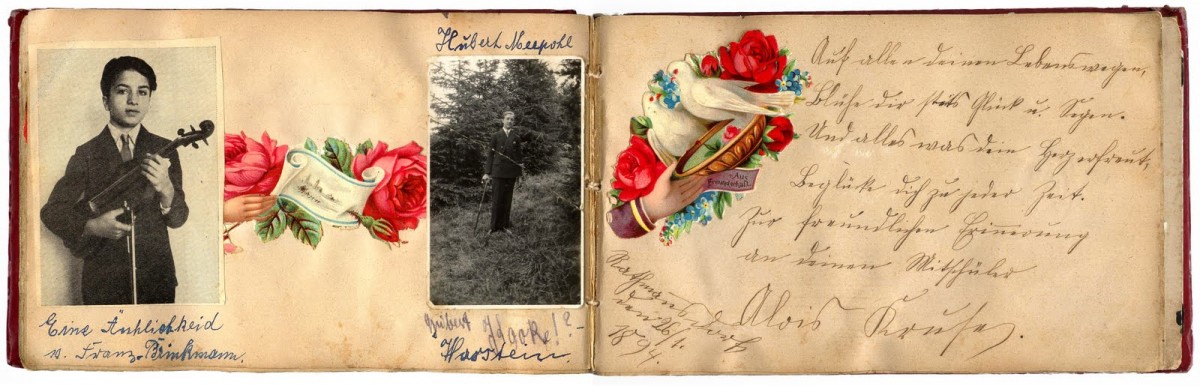 Hubert Meepohl
Eine Ähnlichkeid
v. Franz Brinkmann.
Hubert
Warstein.
Aus
Freundschaft.
Auf allen deinen Lebenswegen,
Blühe dir stets Glück u. Segen.
Und alles was dein Herz erfreut,
Beglücke dich zu jeder Zeit.
Zur freundlichen Erinnerung
an deinen Mitschüler
Alois Kruse.
den 26/1.
1894.